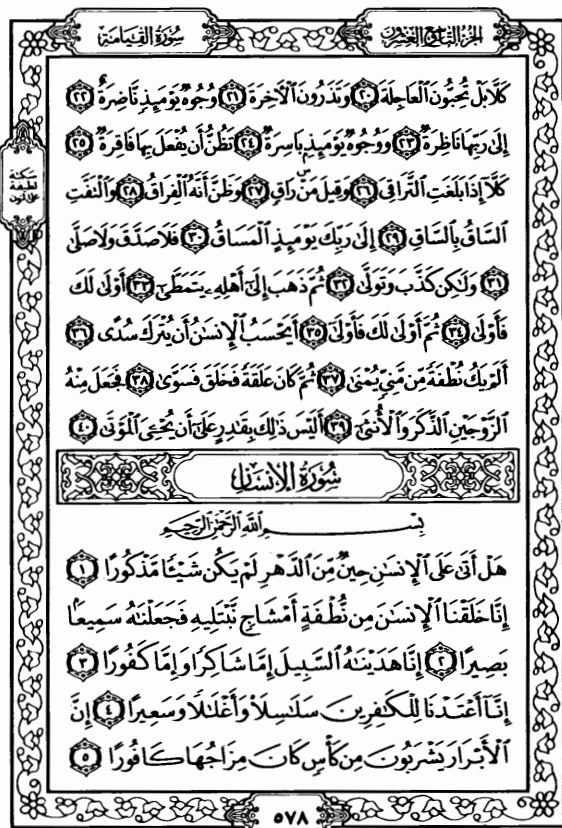 الجزء التاسع والعشرون
سورة القيامة
كَلَّا بَلْ تُحِبُّونَ الْعَاجِلَةَ ٢٠ وَتَذَرُونَ الْآخِرَةَ ٢١ وُجُوهٌ يَوْمَئِذٍ نَّاضِرَةٌ ٢٢
إِلَىٰ رَبِّهَا نَاظِرَةٌ ٢٣ وَوُجُوهٌ يَوْمَئِذٍ بَاسِرَةٌ ٢٤ تَظُنُّ أَن يُفْعَلَ بِهَا فَاقِرَةٌ ٢٥
كَلَّا إِذَا بَلَغَتِ التَّرَاقِيَ ٢٦ وَقِيلَ مَنْ رَاقٍ ٢٧ وَظَنَّ أَنَّهُ الْفِرَاقُ ٢٨ وَالْتَفَّتِ
السَّاقُ بِالسَّاقِ ٢٩ إِلَىٰ رَبِّكَ يَوْمَئِذٍ الْمَسَاقُ ٣٠ فَلَا صَدَّقَ وَلَا صَلَّىٰ
٣١ وَلَٰكِن كَذَّبَ وَتَوَلَّىٰ ٣٢ ثُمَّ ذَهَبَ إِلَىٰ أَهْلِهِ يَتَمَطَّىٰ ٣٣ أَوْلَىٰ لَكَ
فَأَوْلَىٰ ٣٤ ثُمَّ أَوْلَىٰ لَكَ فَأَوْلَىٰ ٣٥ أَيَحْسَبُ الْإِنسَانُ أَن يُتْرَكَ سُدًى ٣٦
أَلَمْ يَكُ نُطْفَةً مِّن مَّنِيٍّ يُمْنَىٰ ٣٧ ثُمَّ كَانَ عَلَقَةً فَخَلَقَ فَسَوَّىٰ ٣٨ فَجَعَلَ مِنْهُ
الزَّوْجَيْنِ الذَّكَرَ وَالْأُنثَىٰ ٣٩ أَلَيْسَ ذَٰلِكَ بِقَادِرٍ عَلَىٰ أَن يُحْيِيَ الْمَوْتَىٰ ٤٠
سُورَةُ الْإِنسَانِ
بِسْمِ اللَّهِ الرَّحْمَٰنِ الرَّحِيمِ
هَلْ أَتَىٰ عَلَى الْإِنسَانِ حِينٌ مِّنَ الدَّهْرِ لَمْ يَكُن شَيْئًا مَّذْكُورًا ١
إِنَّا خَلَقْنَا الْإِنسَانَ مِن نُّطْفَةٍ أَمْشَاجٍ نَّبْتَلِيهِ فَجَعَلْنَاهُ سَمِيعًا
بَصِيرًا ٢ إِنَّا هَدَيْنَاهُ السَّبِيلَ إِمَّا شَاكِرًا وَإِمَّا كَفُورًا ٣
إِنَّا أَعْتَدْنَا لِلْكَافِرِينَ سَلَاسِلَا وَأَغْلَالًا وَسَعِيرًا ٤ إِنَّ
الْأَبْرَارَ يَشْرَبُونَ مِن كَأْسٍ كَانَ مِزَاجُهَا كَافُورًا ٥
سكتة
لطيفة
على النون
٥٧٨